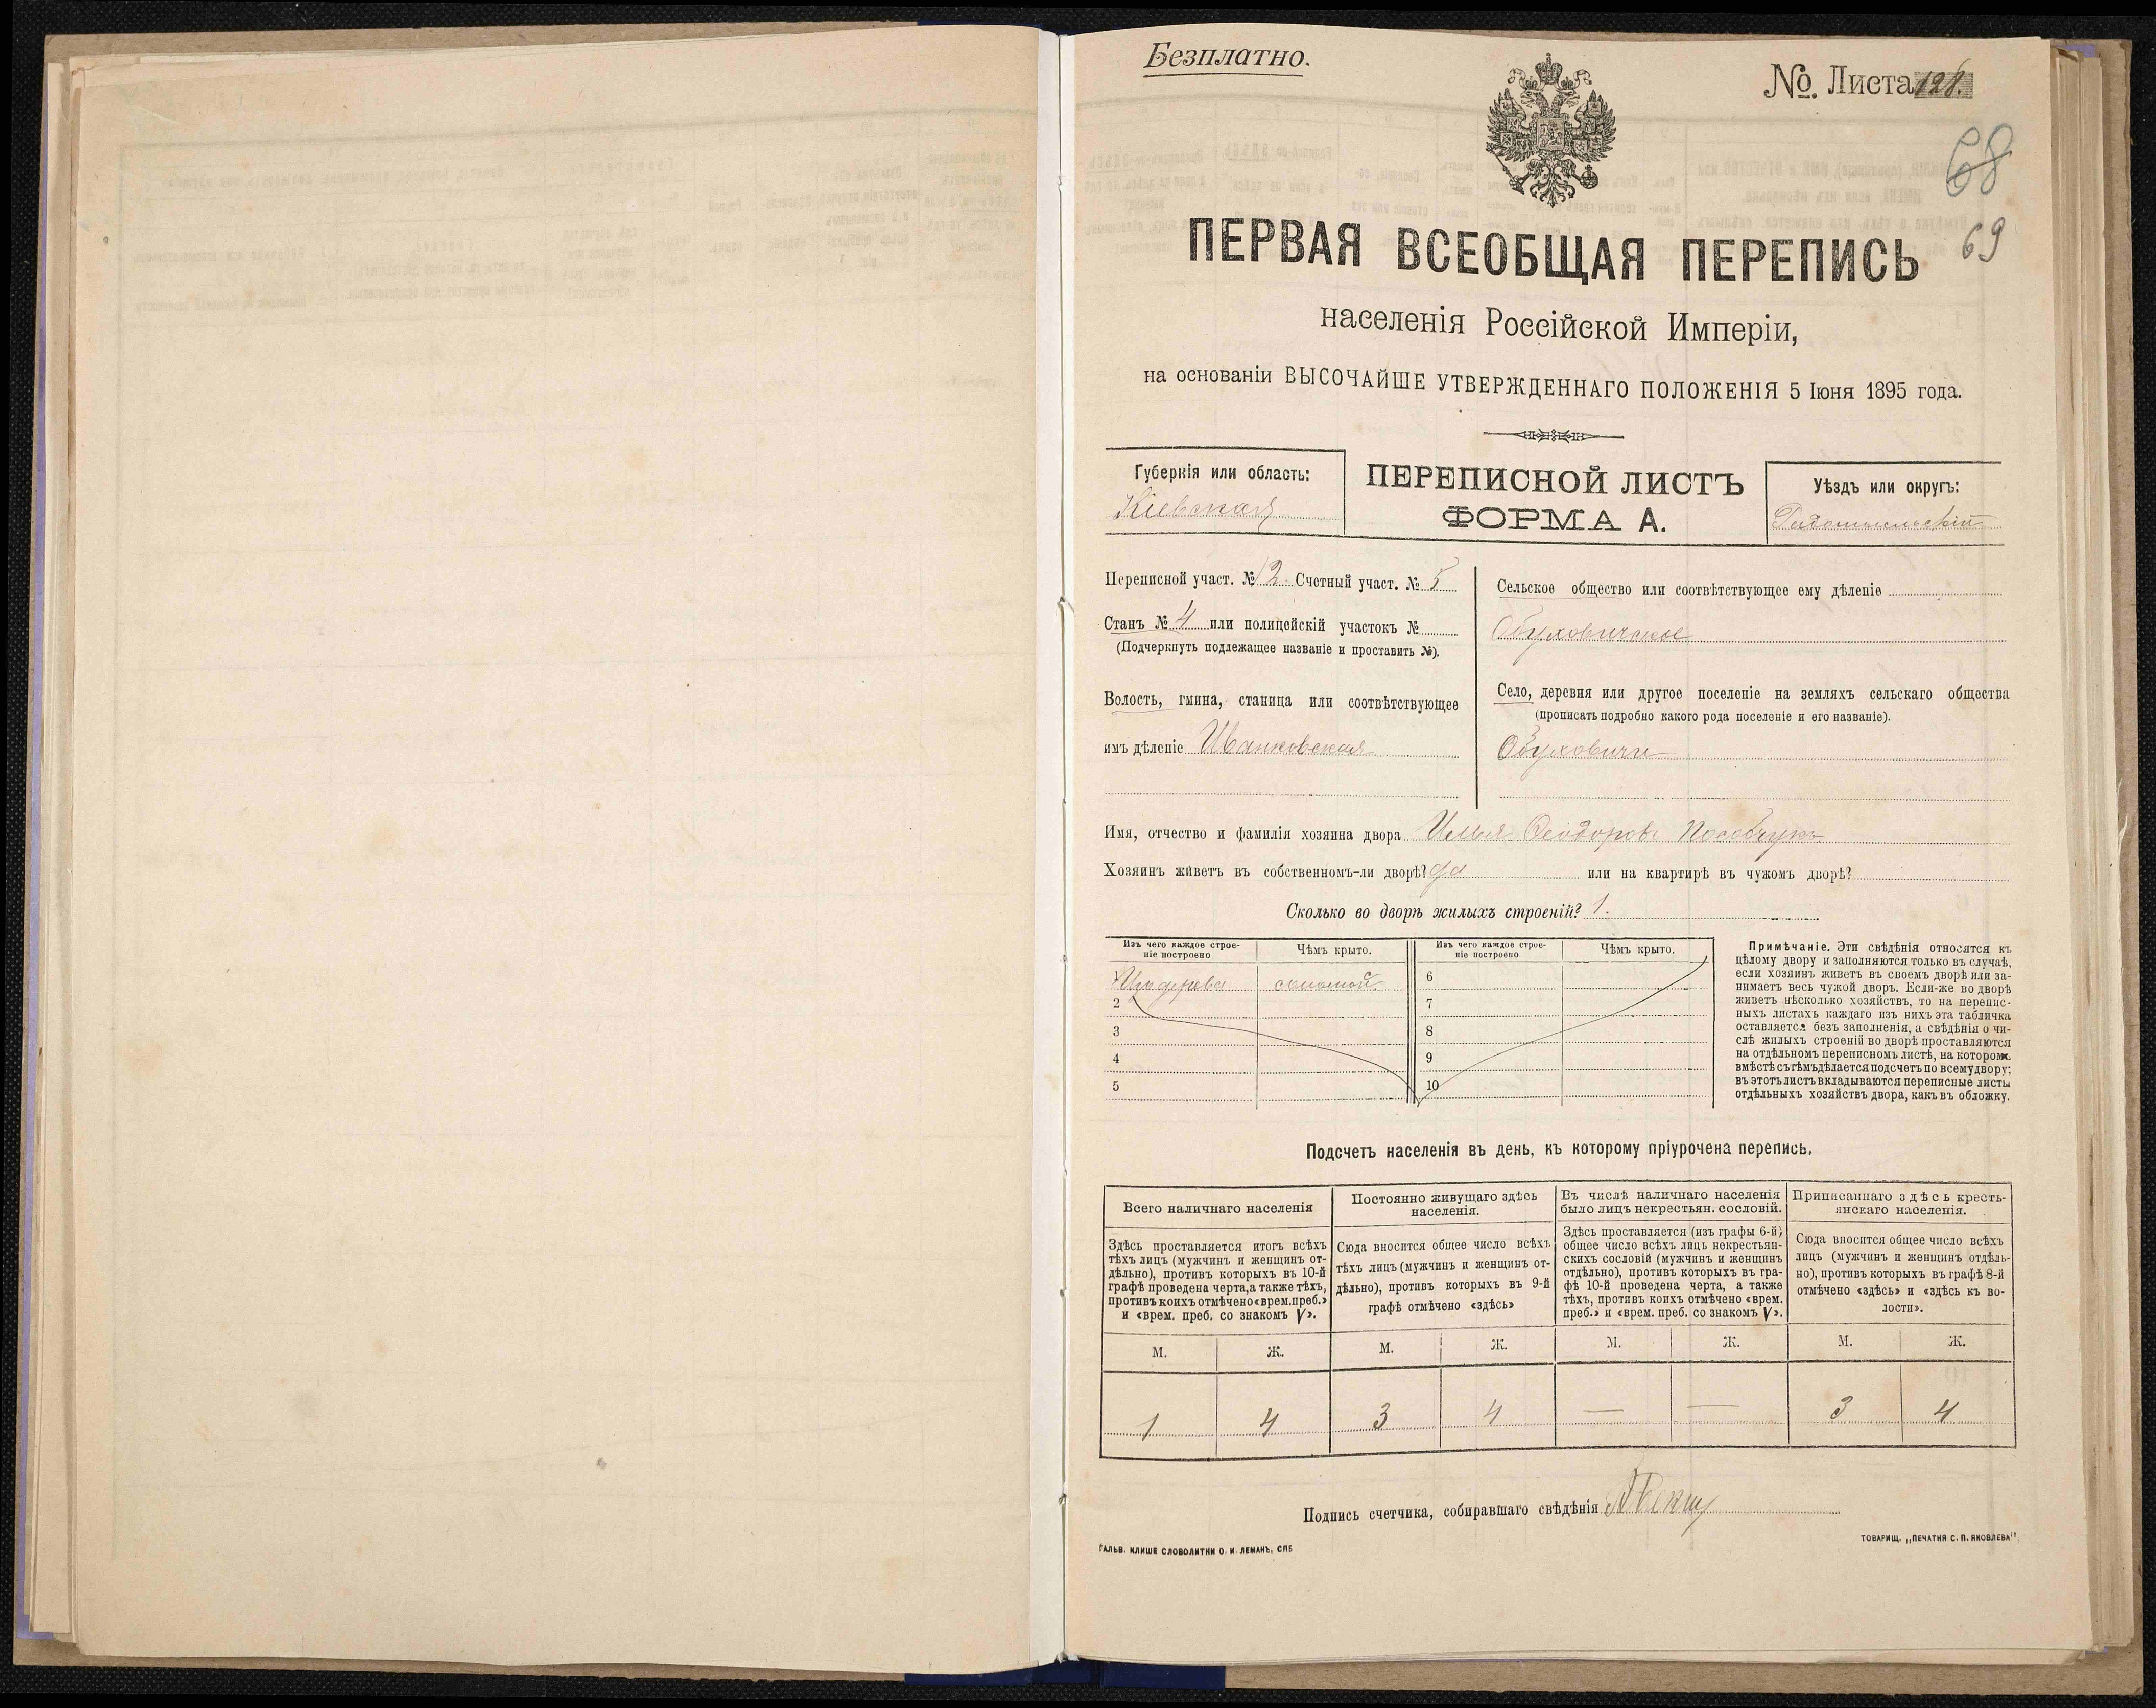 Безплатно.
№ Листа 128.
68
69
ПЕРВАЯ ВСЕОБЩАЯ ПЕРЕПИСЬ
населенія Россійской Имперіи,
на основаніи ВЫСОЧАЙШЕ УТВЕРЖДЕННАГО ПОЛОЖЕНІЯ 5 Іюня 1895 года.
Губернія или область:
Кіевская
ПЕРЕПИСНОЙ ЛИСТЪ
ФОРМА А.
Уѣздъ или округъ:
Радомысльскій
Переписной участ. № 12. Счетный участ. № 5
Станъ № 4 или полицейскій участокъ №
(Подчеркнуть подлежащее названіе и проставить №).
Волость, гмина, станица или соотвѣтствующее
имъ дѣленіе Иванковская
Сельское общество или соотвѣтствующее ему дѣленіе
Обуховичское
Село, деревня или другое поселеніе на земляхъ сельскаго общества
(прописать подробно какого рода поселеніе и его названіе).
Обуховичи
Имя, отчество и фамилія хозяина двора Илья Ѳеодоровъ Пособчукъ
Хозяинъ живетъ въ собственномъ-ли дворѣ? да или на квартирѣ въ чужомъ дворѣ?
Сколько во дворѣ жилыхъ строеній? 1.
Изъ чего каждое строе-
ніе построено
Чѣмъ крыто.
Изъ чего каждое строе-
ніе построено
Чѣмъ крыто.
1 Изъ дерева соломой 6
2 7
3 8
4 9
5 10
Примѣчаніе. Эти свѣдѣнія относятся къ
цѣлому двору и заполняются только въ случаѣ,
если хозяинъ живетъ въ своемъ дворѣ или за-
нимаетъ весь чужой дворъ. Если-же во дворѣ
живетъ нѣсколько хозяйствъ, то на перепис-
ныхъ листахъ каждаго изъ нихъ эта табличка
оставляется безъ заполненія, а свѣдѣнія о чи-
слѣ жилыхъ строеній во дворѣ проставляются
на отдѣльномъ переписномъ листѣ, на которомъ
вмѣстѣ съ тѣмъ дѣлается подсчетъ по всему двору;
въ этотъ листъ вкладываются переписные листы
отдѣльныхъ хозяйствъ двора, какъ въ обложку.
Подсчетъ населенія въ день, къ которому пріурочена перепись.
Всего наличнаго населенія
Здѣсь проставляется итогъ всѣхъ
тѣхъ лицъ (мужчинъ и женщинъ от-
дѣльно), противъ которыхъ въ 10-й
графѣ проведена черта, а также тѣхъ,
противъ коихъ отмѣчено «врем. преб.»
и «врем. преб. со знакомъ V».
Постоянно живущаго здѣсь
населенія.
Сюда вносится общее число всѣхъ
тѣхъ лицъ (мужчинъ и женщинъ от-
дѣльно), противъ которыхъ въ 9-й
графѣ отмѣчено «здѣсь»
Въ числѣ наличнаго населенія
было лицъ некрестьян. сословій.
Здѣсь проставляется (изъ графы 6-й)
общее число всѣхъ лицъ некрестьян-
скихъ сословій (мужчинъ и женщинъ
отдѣльно), противъ которыхъ въ гра-
фѣ 10-й проведена черта, а также
тѣхъ, противъ коихъ отмѣчено «врем.
преб.» и «врем. преб. со знакомъ V».
Приписаннаго здѣсь кресть-
янскаго населенія.
Сюда вносится общее число всѣхъ
лицъ (мужчинъ и женщинъ отдѣль-
но), противъ которыхъ въ графѣ 8-й
отмѣчено «здѣсь» и «здѣсь къ во-
лости».
М. Ж. М. Ж. М. Ж. М. Ж.
1 4 3 4 — — 3 4
Подпись счетчика, собиравшаго свѣдѣнія
ГАЛЬВ. КЛИШЕ СЛОВОЛИТНИ О. И. ЛЕМАНЪ, СПБ
ТОВАРИЩ. „ПЕЧАТНЯ С. П. ЯКОВЛЕВА"